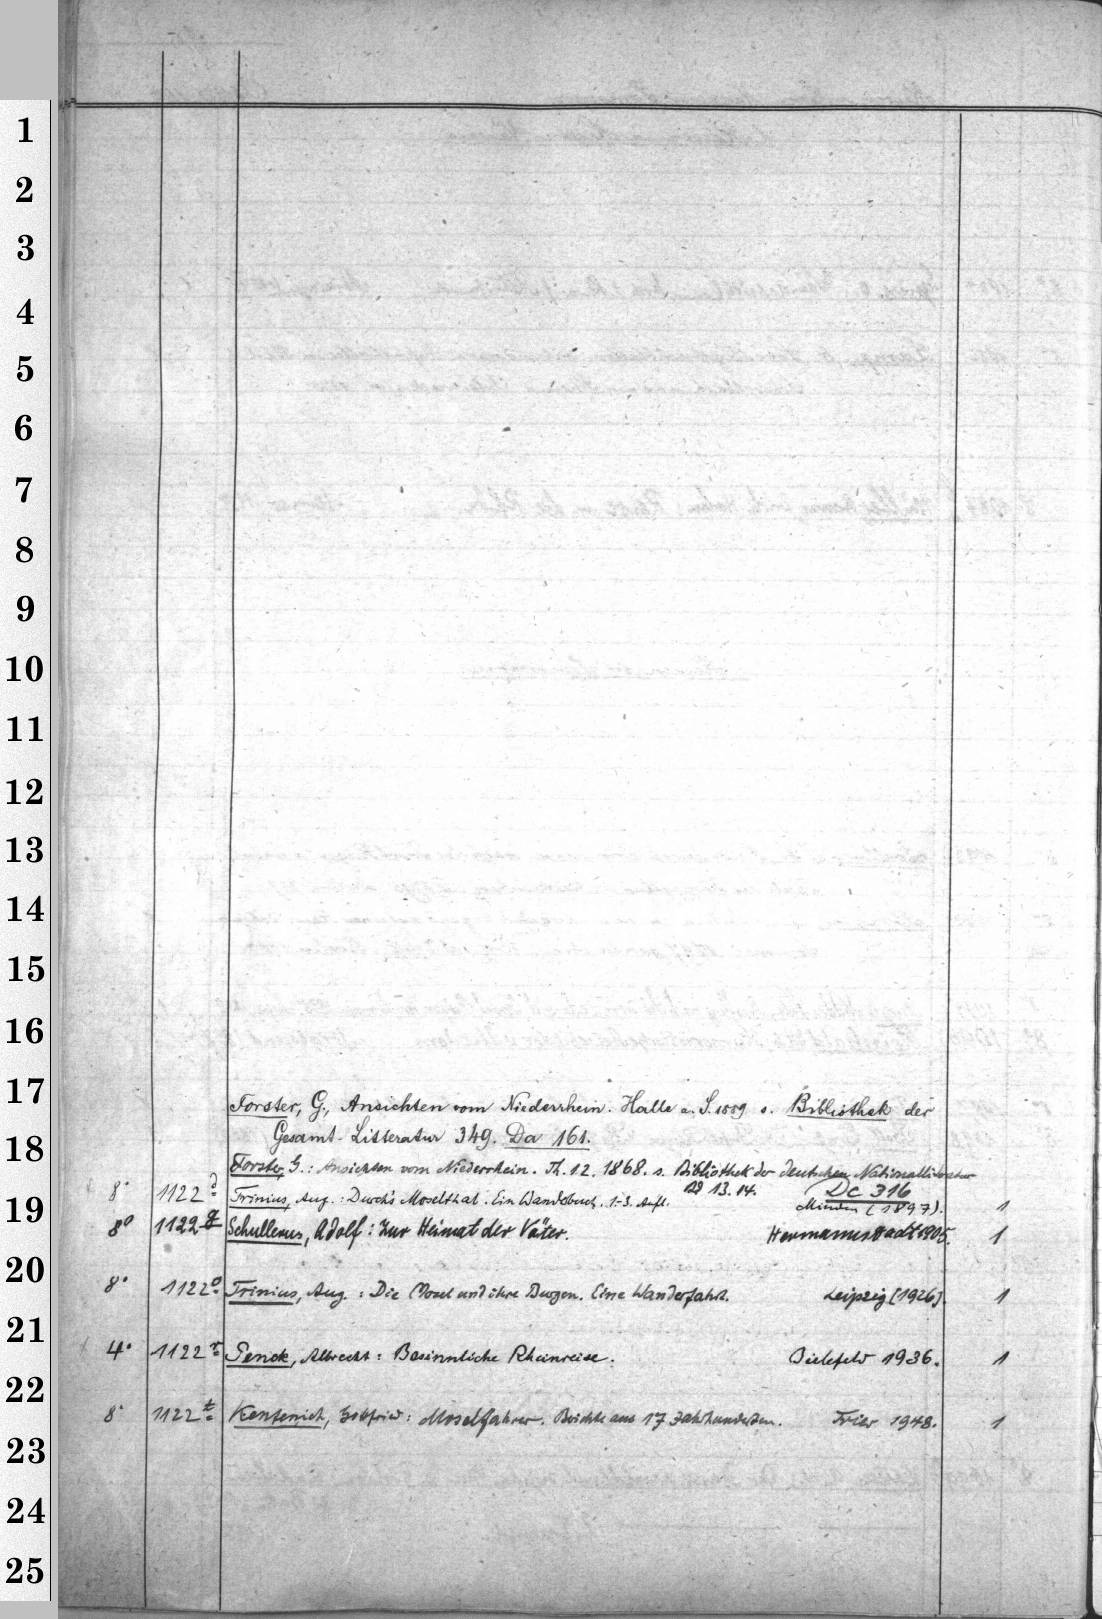 1
2
3
4
5
6
7
8
9
10
11
12
13
14
15
16
17
18
19
20
21
22
23
24
25
Forster, G., Ansichten vom Niederrhein. Halle a. S. 1889 s. Bibliothek der
Gesamt-Litteratur 349. Da 161.
Forster, G.: Ansichten vom Niederrhein. Th. 1.2. 1868. s. Bibliothek der deutschen Nationallitteratur
Bd 13. 14. Dc 316
8° 1122 d Trinius, Aug.: Durch's Moselthal. Ein Wanderbuch. 1-3. Aufl. Minden (1897). 1
8° 1122 g Schullerus, Adolf: Zur Heimat der Väter. Hermannstadt 1905. 1
8° 1122 o Trinius, Aug.: Die Mosel und ihre Burgen. Eine Wanderfahrt. Leipzig [1926]. 1
4° 1122 r Penck, Albrecht: Besinnliche Rheinreise. Bielefeld 1936. 1
8° 1122 t Kentenich, Gottfried: Moselfahrer. Berichte aus 17 Jahrhunderten. Trier 1948. 1